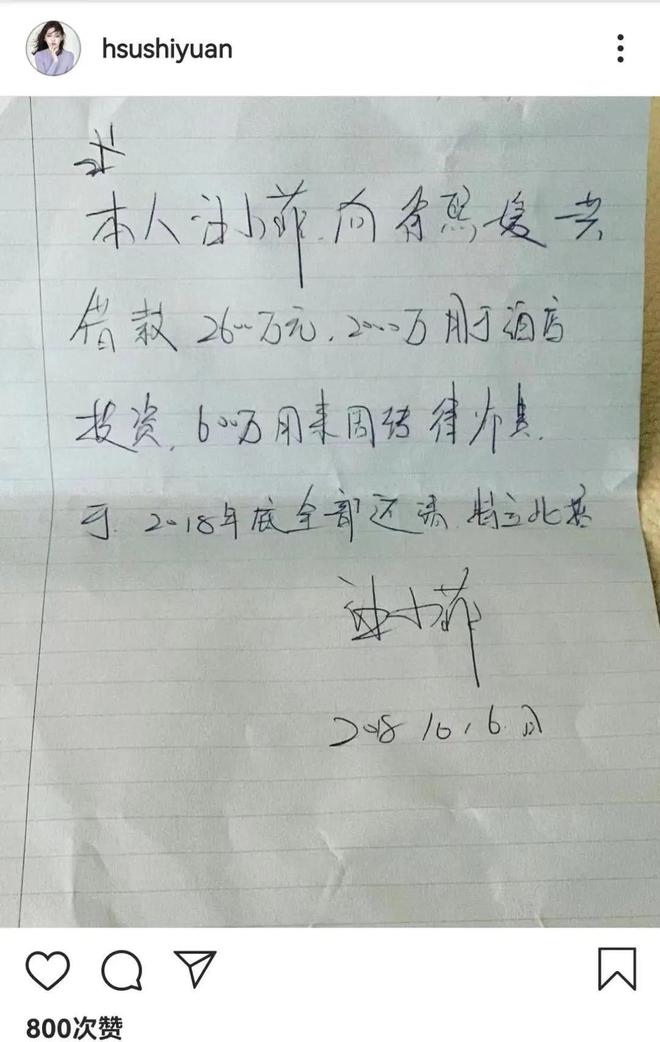 hsushiyuan
本人汪小菲向徐熙媛共
借款2600万元,2000万用于酒店
投资,600万用来周转律师费.
于2018年底全部还清.特立此据
汪小菲
2018 10.6.
800次赞